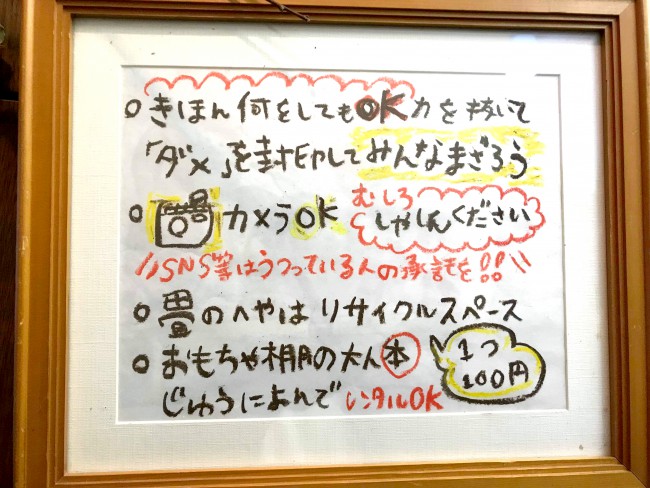 ○きほん何をしてもOK力を抜いて
「ダメ」を封印してみんなまざろう
○カメラOK
むしろ
しゃしんください
SNS等はうつっている人の承諾を!!
○畳のへやはリサイクルスペース
●おもちゃ棚の大人本
じゆうによんでレンタルOK
1つ
100円